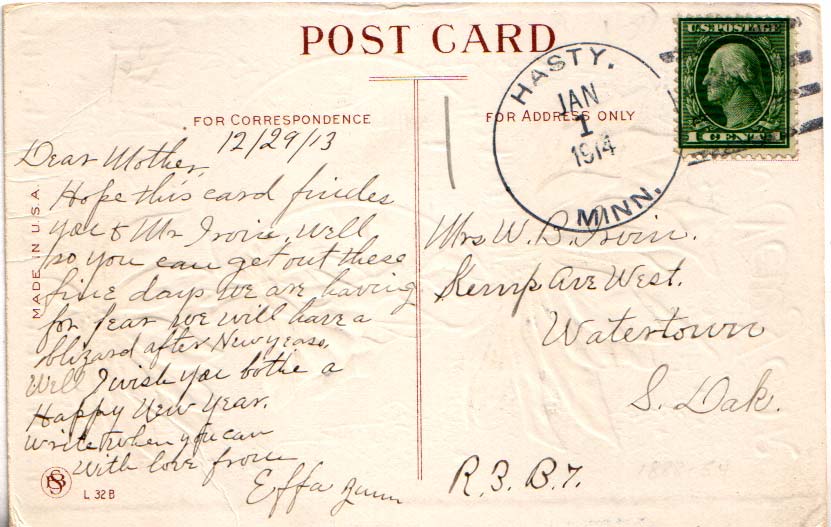 POST CARD
FOR CORRESPONDENCE
12/29/13
Dear Mother,
Hope this card findes
you & Mr Irvin, well
so you can get out these
fine days we are having
for fear we will have a
blizard after New years,
Well I wish you bothe a
Happy New Year.
write when you can
With love from
Effa
MADE IN U.S.A.
L 32 B
FOR ADDRESS ONLY
HASTY.
JAN
1
1914
MINN.
U.S. POSTAGE
1 CENT 1
Mrs W. B. Irvin.
Kemp Ave West.
Watertown
S. Dak.
R.3. B.7.